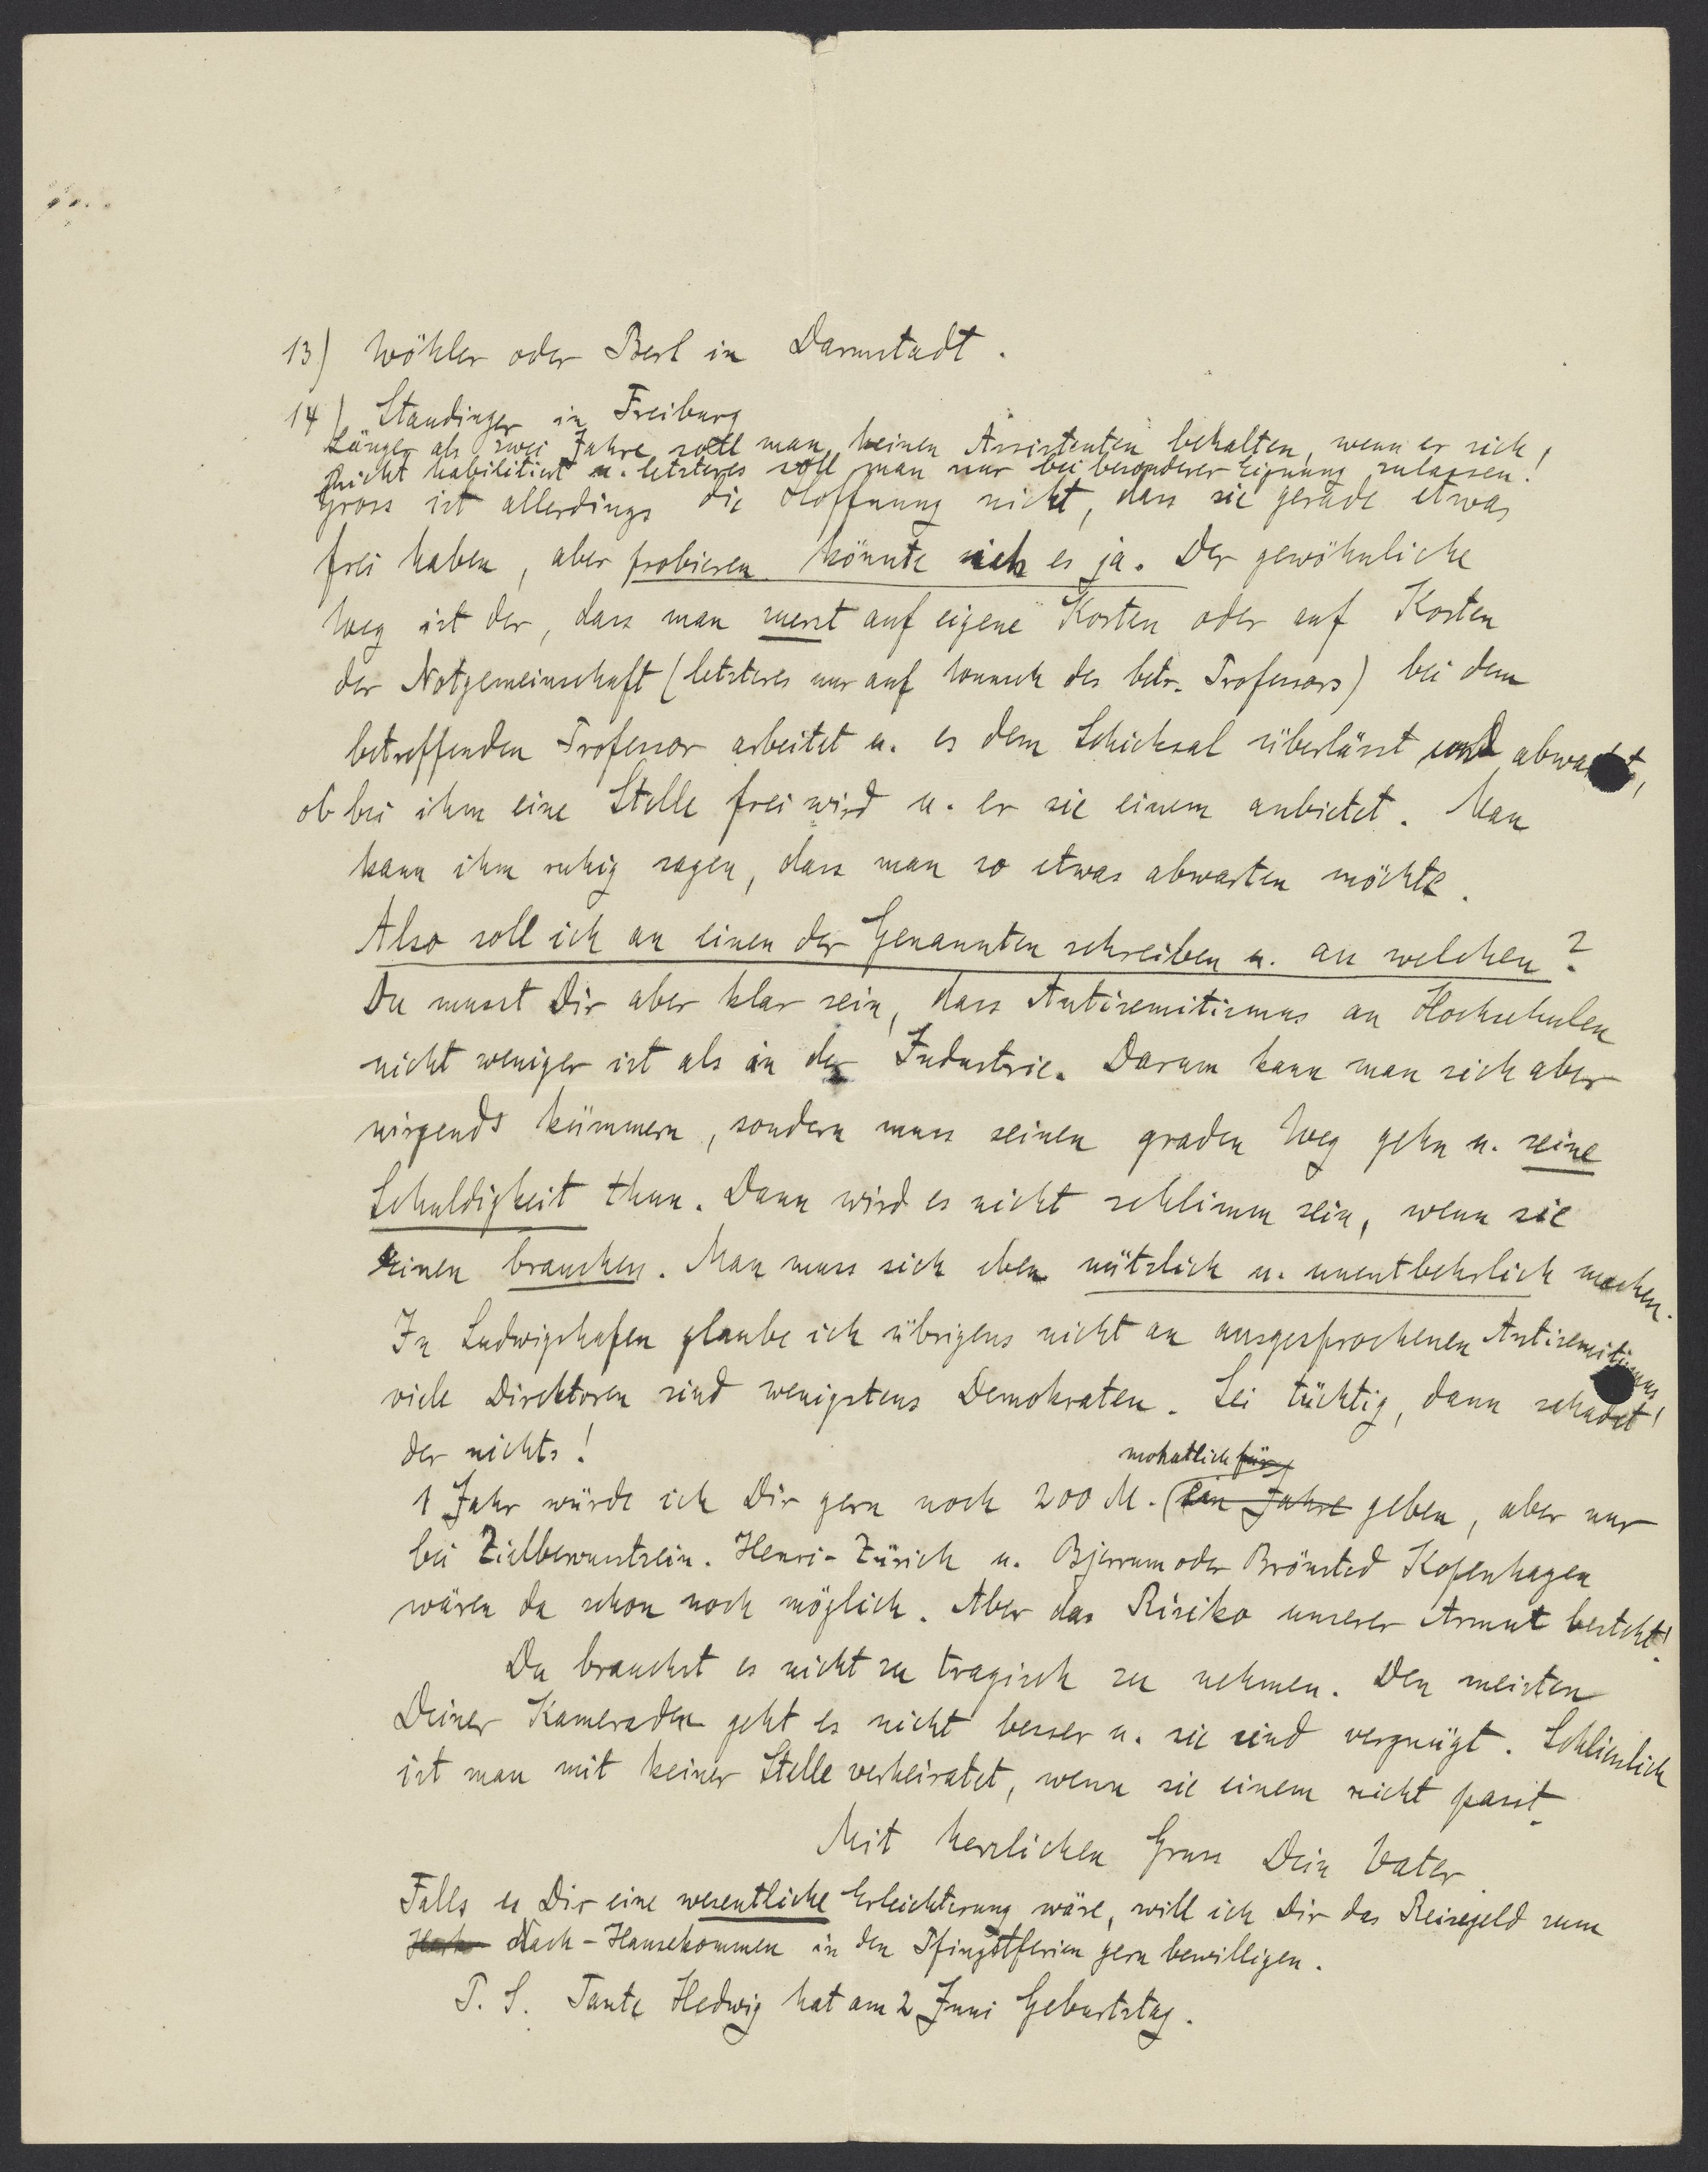 13) Wöhler oder Berl in Darmstadt.
14) Staudinger in Freiburg
Länger als zwei Jahre soll man keinen Assistenten behalten, wenn er sich
nicht habilitiert u. letzteres soll man nur bei besonderer Eignung zulassen!
Gross ist allerdings die Hoffnung nicht, dass sie gerade etwas
frei haben, aber probieren könnte ich es ja. Der gewöhnliche
Weg ist der, dass man zuerst auf eigene Kosten oder auf Kosten
der Notgemeinschaft (letzteres nur auf Wunsch des betr. Professors) bei dem
betreffenden Professor arbeitet u. es dem Schicksal überlässt und abwartet,
ob bei ihm eine Stelle frei wird u. er sie einem anbietet. Man
kann ihm ruhig sagen, dass man so etwas abwarten möchte.
Also soll ich an einen der Genannten schreiben u. an welchen?
Du musst Dir aber klar sein, dass Antisemitismus an Hochschulen
nicht weniger ist als in der Industrie. Darum kann man sich aber
nirgends kümmern, sondern muss seinen graden Weg gehn u. seine
Schuldigkeit thun. Dann wird es nicht schlimm sein, wenn sie
einen brauchen. Man muss sich eben nützlich u. unentbehrlich machen.
In Ludwigshafen glaube ich übrigens nicht an ausgesprochenen Antisemitismus
viele Direktoren sind wenigstens Demokraten. Sei tüchtig, dann schadet
der nichts!
monatlich für
1 Jahr würde ich Dir gern noch 200 M. (ein Jahre geben, aber nur
bei Zielbewusstsein. Henri-Zürich u. Bjerrum oder Brönsted Kopenhagen
wären da schon noch möglich. Aber das Risiko unserer Armut besteht!
Du brauchst es nicht zu tragisch zu nehmen. Den meisten
Deiner Kameraden geht es nicht besser u. sie sind vergnügt. Schliesslich
ist man mit keiner Stelle verheiratet, wenn sie einem nicht passt.
Mit herzlichen Gruss Dein Vater
Falls es Dir eine wesentliche Erleichterung wäre, will ich Dir das Reisegeld zum
Nach-Hausekommen in den Pfingstferien gern bewilligen.
P. S. Tante Hedwig hat am 2 Juni Geburtstag.